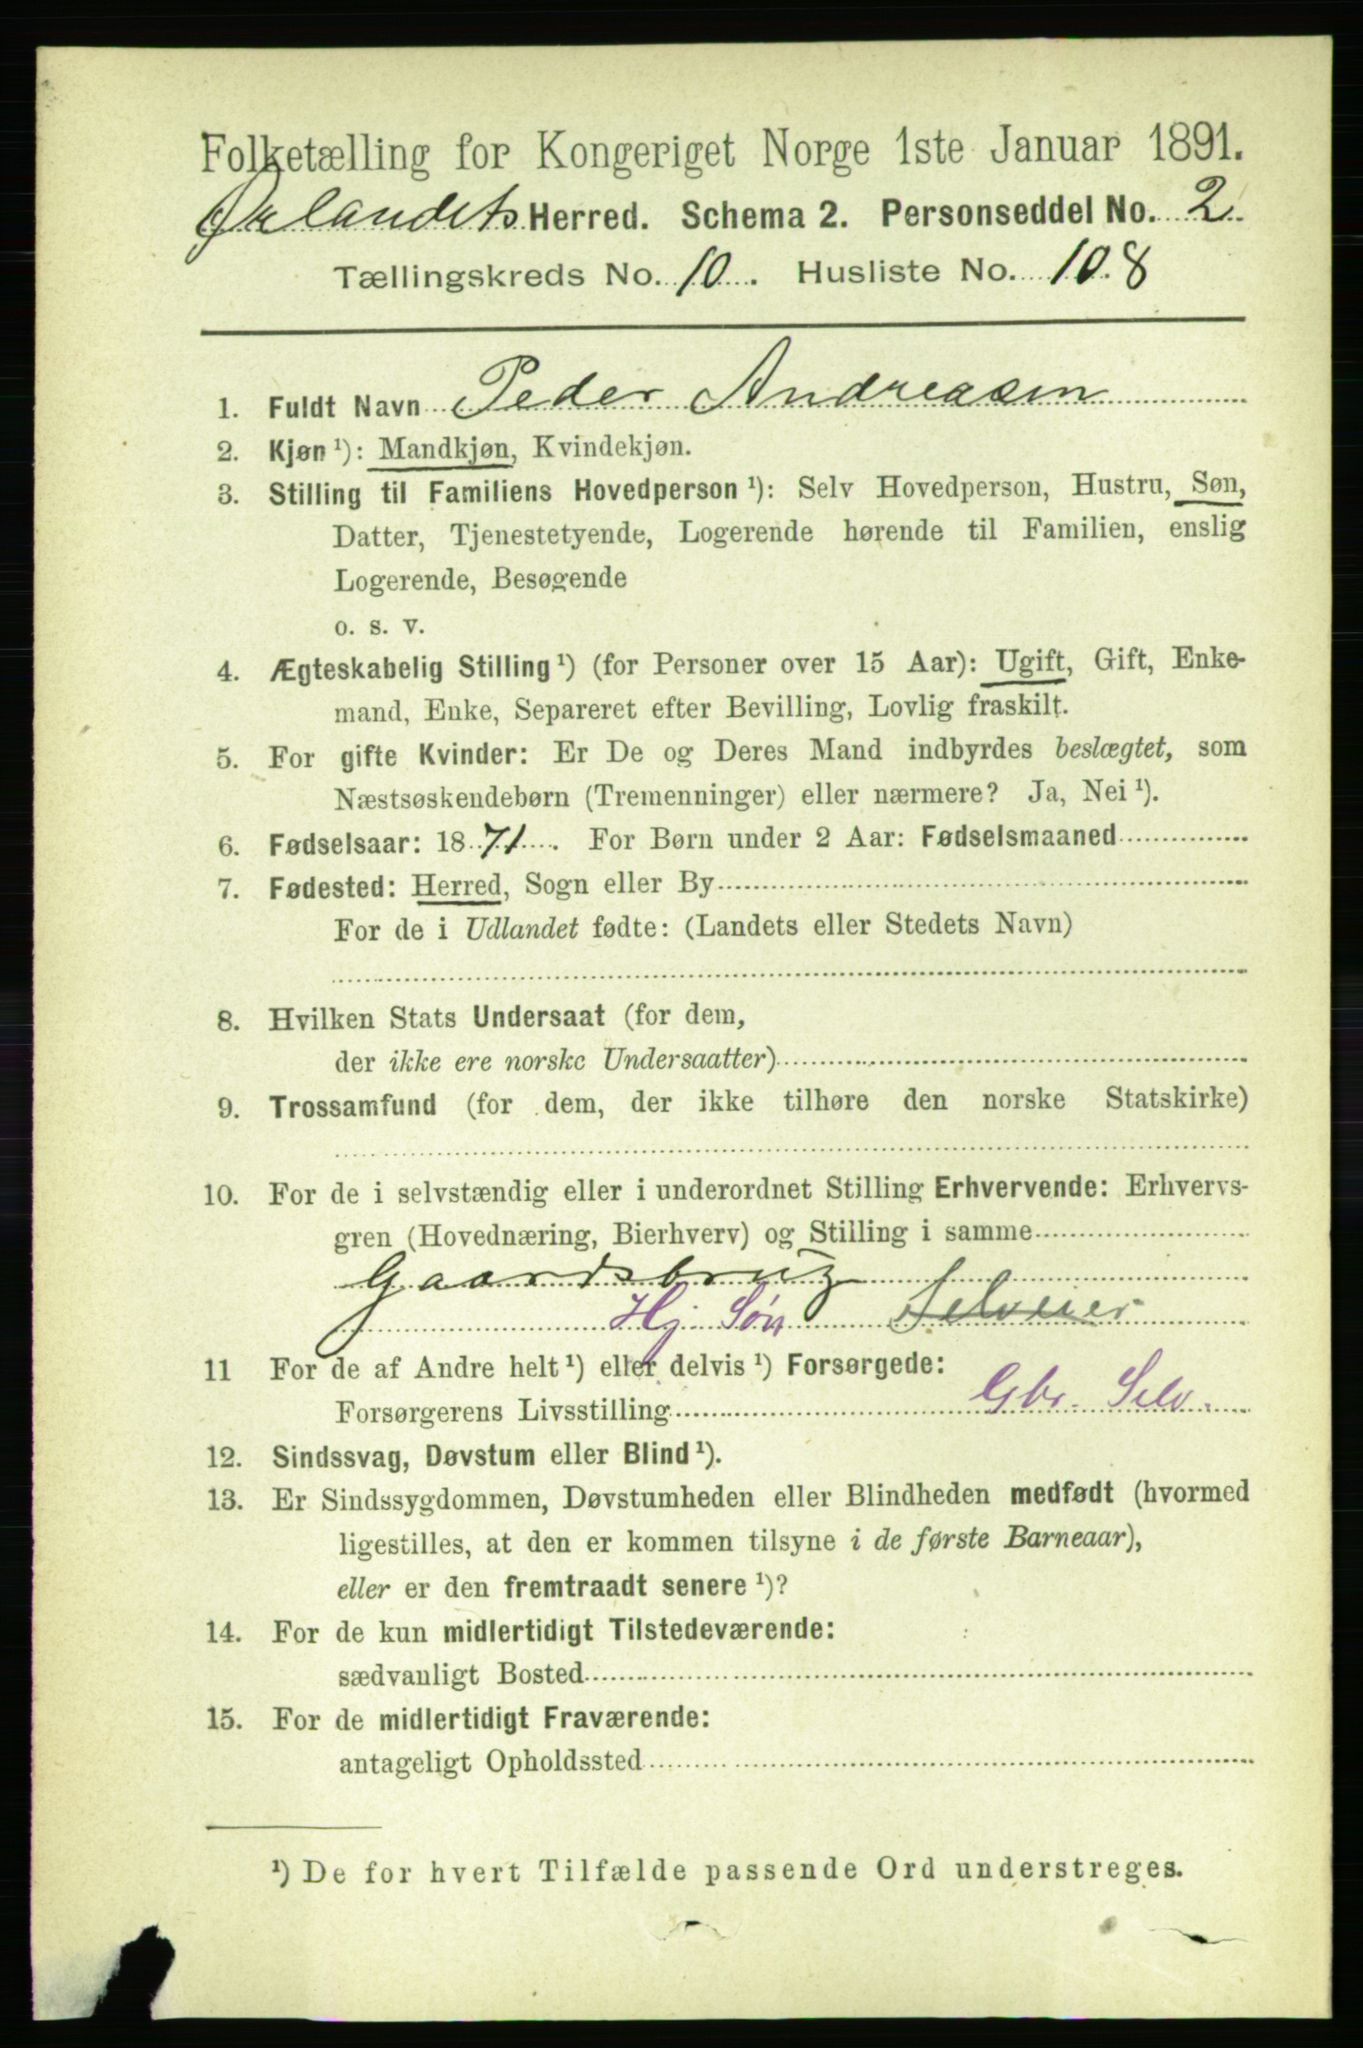 Folketælling for Kongeriget Norge 1ste Januar 1891.
Ørlandets Herred. Schema 2. Personseddel No. 2.
Tællingskreds No. 10. Husliste No. 108
1. Fuldt Navn Peder Andreasen
2. Kjøn ¹): Mandkjøn, Kvindekjøn.
3. Stilling til Familiens Hovedperson ¹): Selv Hovedperson, Hustru, Søn,
Datter, Tjenestetyende, Logerende hørende til Familien, enslig
Logerende, Besøgende
o. s. v.
4. Ægteskabelig Stilling ¹) (for Personer over 15 Aar): Ugift, Gift, Enke-
mand, Enke, Separeret efter Bevilling, Lovlig fraskilt.
5. For gifte Kvinder: Er De og Deres Mand indbyrdes beslægtet, som
Næstsøskendebørn (Tremenninger) eller nærmere? Ja, Nei ¹).
6. Fødselsaar: 1871. For Børn under 2 Aar: Fødselsmaaned
7. Fødested: Herred, Sogn eller By
For de i Udlandet fødte: (Landets eller Stedets Navn)
8. Hvilken Stats Undersaat (for dem,
der ikke ere norske Undersaatter)
9. Trossamfund (for dem, der ikke tilhøre den norske Statskirke)
10. For de i selvstændig eller i underordnet Stilling Erhvervende: Erhvervs-
gren (Hovednæring, Bierhverv) og Stilling i samme
Gaardsbrug
Hj. Søn Selveier
11 For de af Andre helt ¹) eller delvis ¹) Forsørgede:
Forsørgerens Livsstilling Gbr. Selv.
12. Sindssvag, Døvstum eller Blind ¹).
13. Er Sindssygdommen, Døvstumheden eller Blindheden medfødt (hvormed
ligestilles, at den er kommen tilsyne i de første Barneaar),
eller er den fremtraadt senere ¹)?
14. For de kun midlertidigt Tilstedeværende:
sædvanligt Bosted
15. For de midlertidigt Fraværende:
antageligt Opholdssted
¹) De for hvert Tilfælde passende Ord understreges.